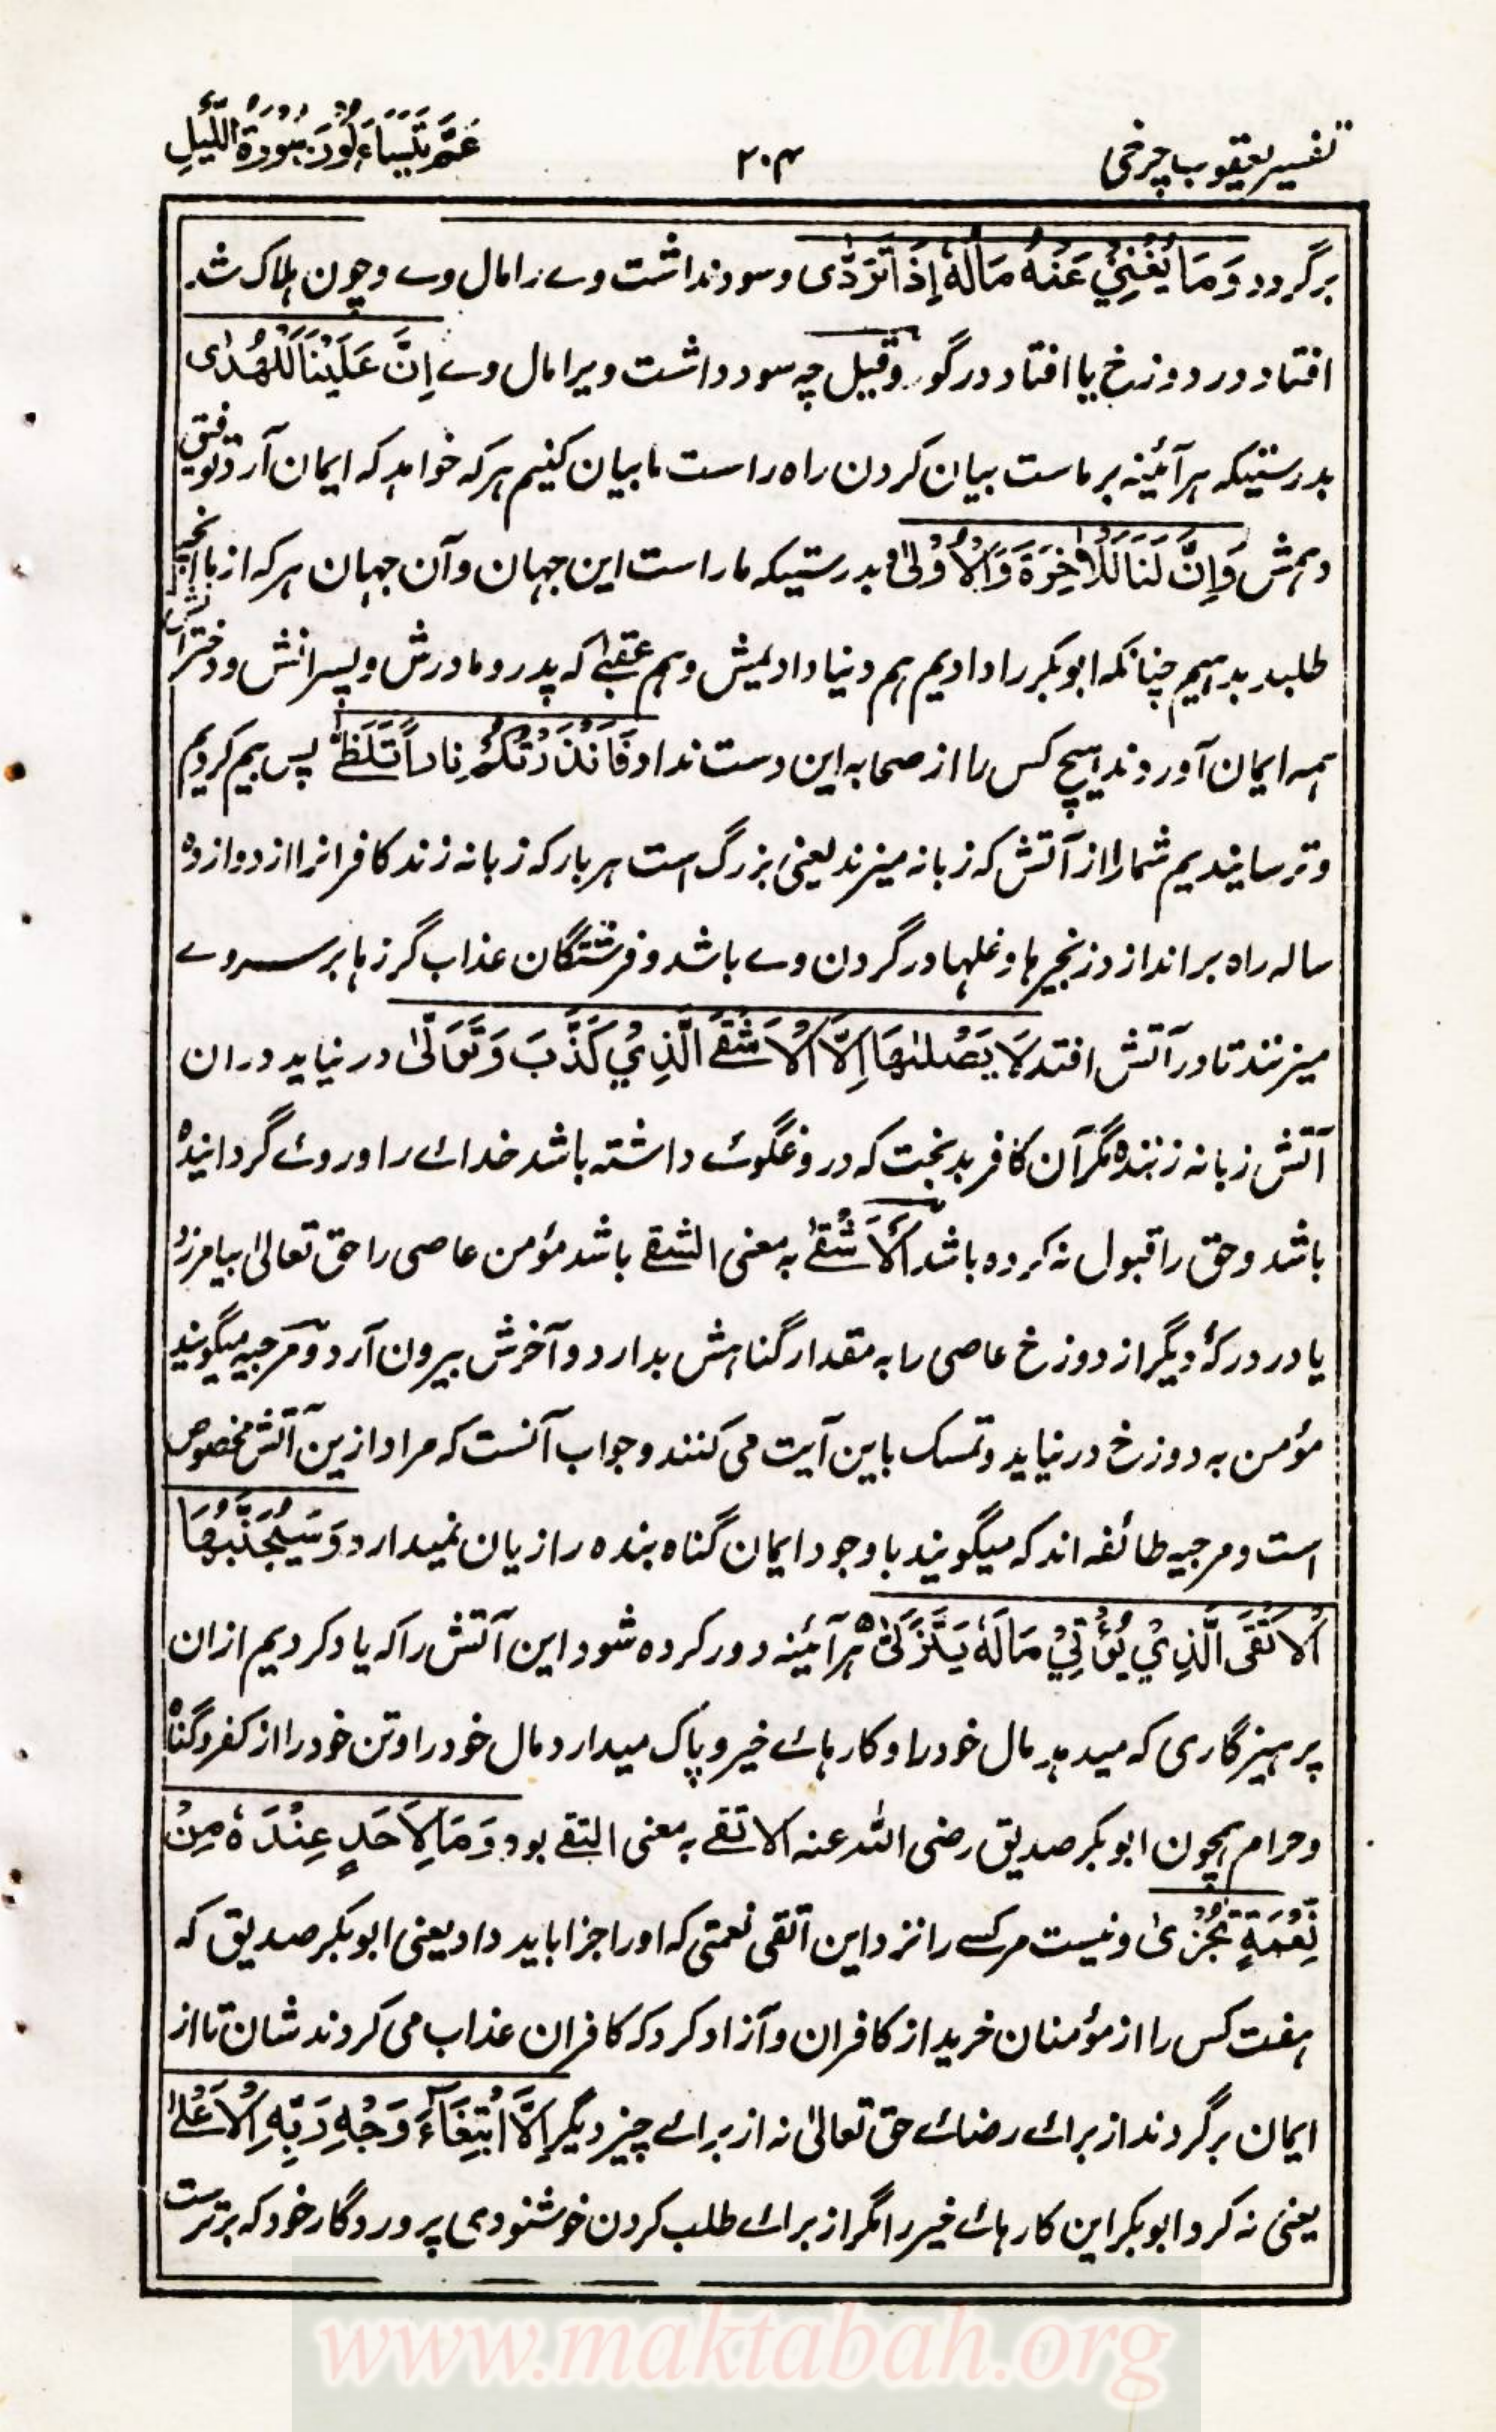 تفسیر یعقوب چرخی
۲۰۴
عَمَّ يَتَسَاءَلُونَ سُورَةُ اللَّيْلِ
برگردد وَمَا يُغْنِيْ عَنْهُ مَالُهٗ اِذَا تَرَدّٰى و سود نداشت وے را مال وے و چون ہلاک شد
افتاد در دوزخ یا افتاد در گور وقیل چہ سود داشت ویرا مال وے اِنَّ عَلَيْنَا لَلْهُدٰى
بدرستیکہ ہر آئینہ بر ماست بیان کردن راہ راست ما بیان کنیم ہر کہ خواہد کہ ایمان آرد توفیق
دہمش وَاِنَّ لَنَا لَلْاٰخِرَةَ وَالْاُوْلٰى و بدرستیکہ ما راست این جہان و آن جہان ہر کہ از ما آنچہ
طلبد بدہیم چنانکہ ابوبکر را دادیم ہم دنیا دادیمش و ہم عقبٰے کہ پدر و مادرش و پسرانش و دخترانش
ہمہ ایمان آوردند ہیچ کس را از صحابہ این دست نداد فَاَنْذَرْتُكُمْ نَارًا تَلَظّٰى پس بیم کردیم
و ترسانیدیم شما را از آتش کہ زبانہ میزند یعنی بزرگ است ہر بار کہ زبانہ زند کافرانرا از دوازدہ
سالہ راہ بر اندازد زنجیرہا و غلہا در گردن وے باشد و فرشتگان عذاب گرزہا بر سر وے
میزنند تا در آتش افتد لَا يَصْلٰىهَا اِلَّا الْاَشْقَى الَّذِيْ كَذَّبَ وَتَوَلّٰى در نیاید در ان
آتش زبانہ زنندہ مگر آن کافر بدبخت کہ دروغگوے داشتہ باشد خداے را و روے گردانیدہ
باشد و حق را قبول نہ کردہ باشد اَلْاَشْقٰى بہ معنی الشقے باشد مؤمن عاصی را حق تعالیٰ بیامرزد
یا در درکۂ دیگر از دوزخ عاصی را بہ مقدار گناہش بدارد و آخرش بیرون آرد و مرجیہ میگویند
مؤمن بہ دوزخ در نیاید و تمسک باین آیت می کنند و جواب آنست کہ مراد ازین آتش مخصوص
است و مرجیہ طائفہ اند کہ میگویند با وجود ایمان گناہ بندہ را زیان نمیدارد وَسَيُجَنَّبُهَا
الْاَتْقَى الَّذِيْ يُؤْتِيْ مَالَهٗ يَتَزَكّٰى ہر آئینہ دور کردہ شود این آتش را کہ یاد کردیم ازان
پرہیزگاری کہ میدہد مال خود را و کارہاے خیر و پاک میدارد مال خود را و تن خود را از کفر و گناہ
و حرام ہمچون ابوبکر صدیق رضی اللہ عنہ الاتقے بہ معنی التقے بود وَمَا لِاَحَدٍ عِنْدَهٗ مِنْ
نِّعْمَةٍ تُجْزٰى و نیست مر کسے را نزد این اتقی نعمتی کہ او را جزا باید داد یعنی ابوبکر صدیق کہ
ہفت کس را از مؤمنان خرید از کافران و آزاد کرد کہ کافران عذاب می کردند شان تا از
ایمان برگردند از براے رضاے حق تعالیٰ نہ از براے چیز دیگر اِلَّا ابْتِغَآءَ وَجْهِ رَبِّهِ الْاَعْلٰى
یعنی نہ کرد ابوبکر این کارہاے خیر را مگر از براے طلب کردن خوشنودی پروردگار خود کہ برترست
www.maktabah.org